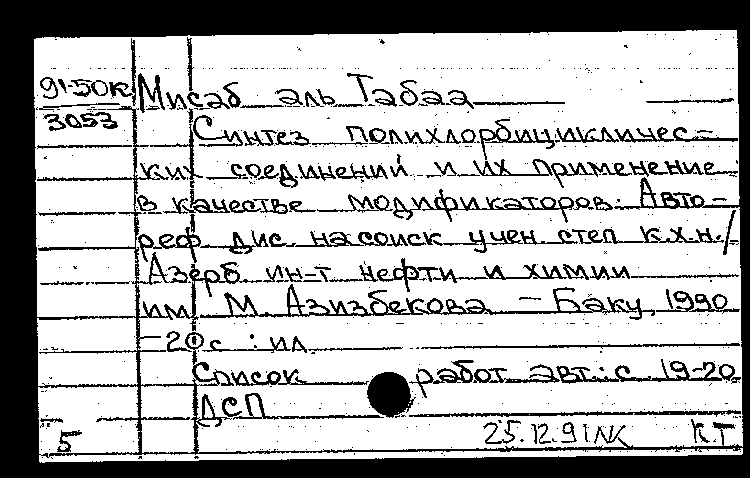 91-50к Мисаб аль Табаа
3053
Синтез полихлорбицикличес-
ких соединений и их применение
в качестве модификаторов: Авто-
реф дис. на соиск учен. степ к.х.н./
Азерб. ин-т нефти и химии
им М. Азизбекова – Баку, 1990
– 20 с : ил
Список работ авт.: с 19-20
ДСП
5 25.12.91 К.Т